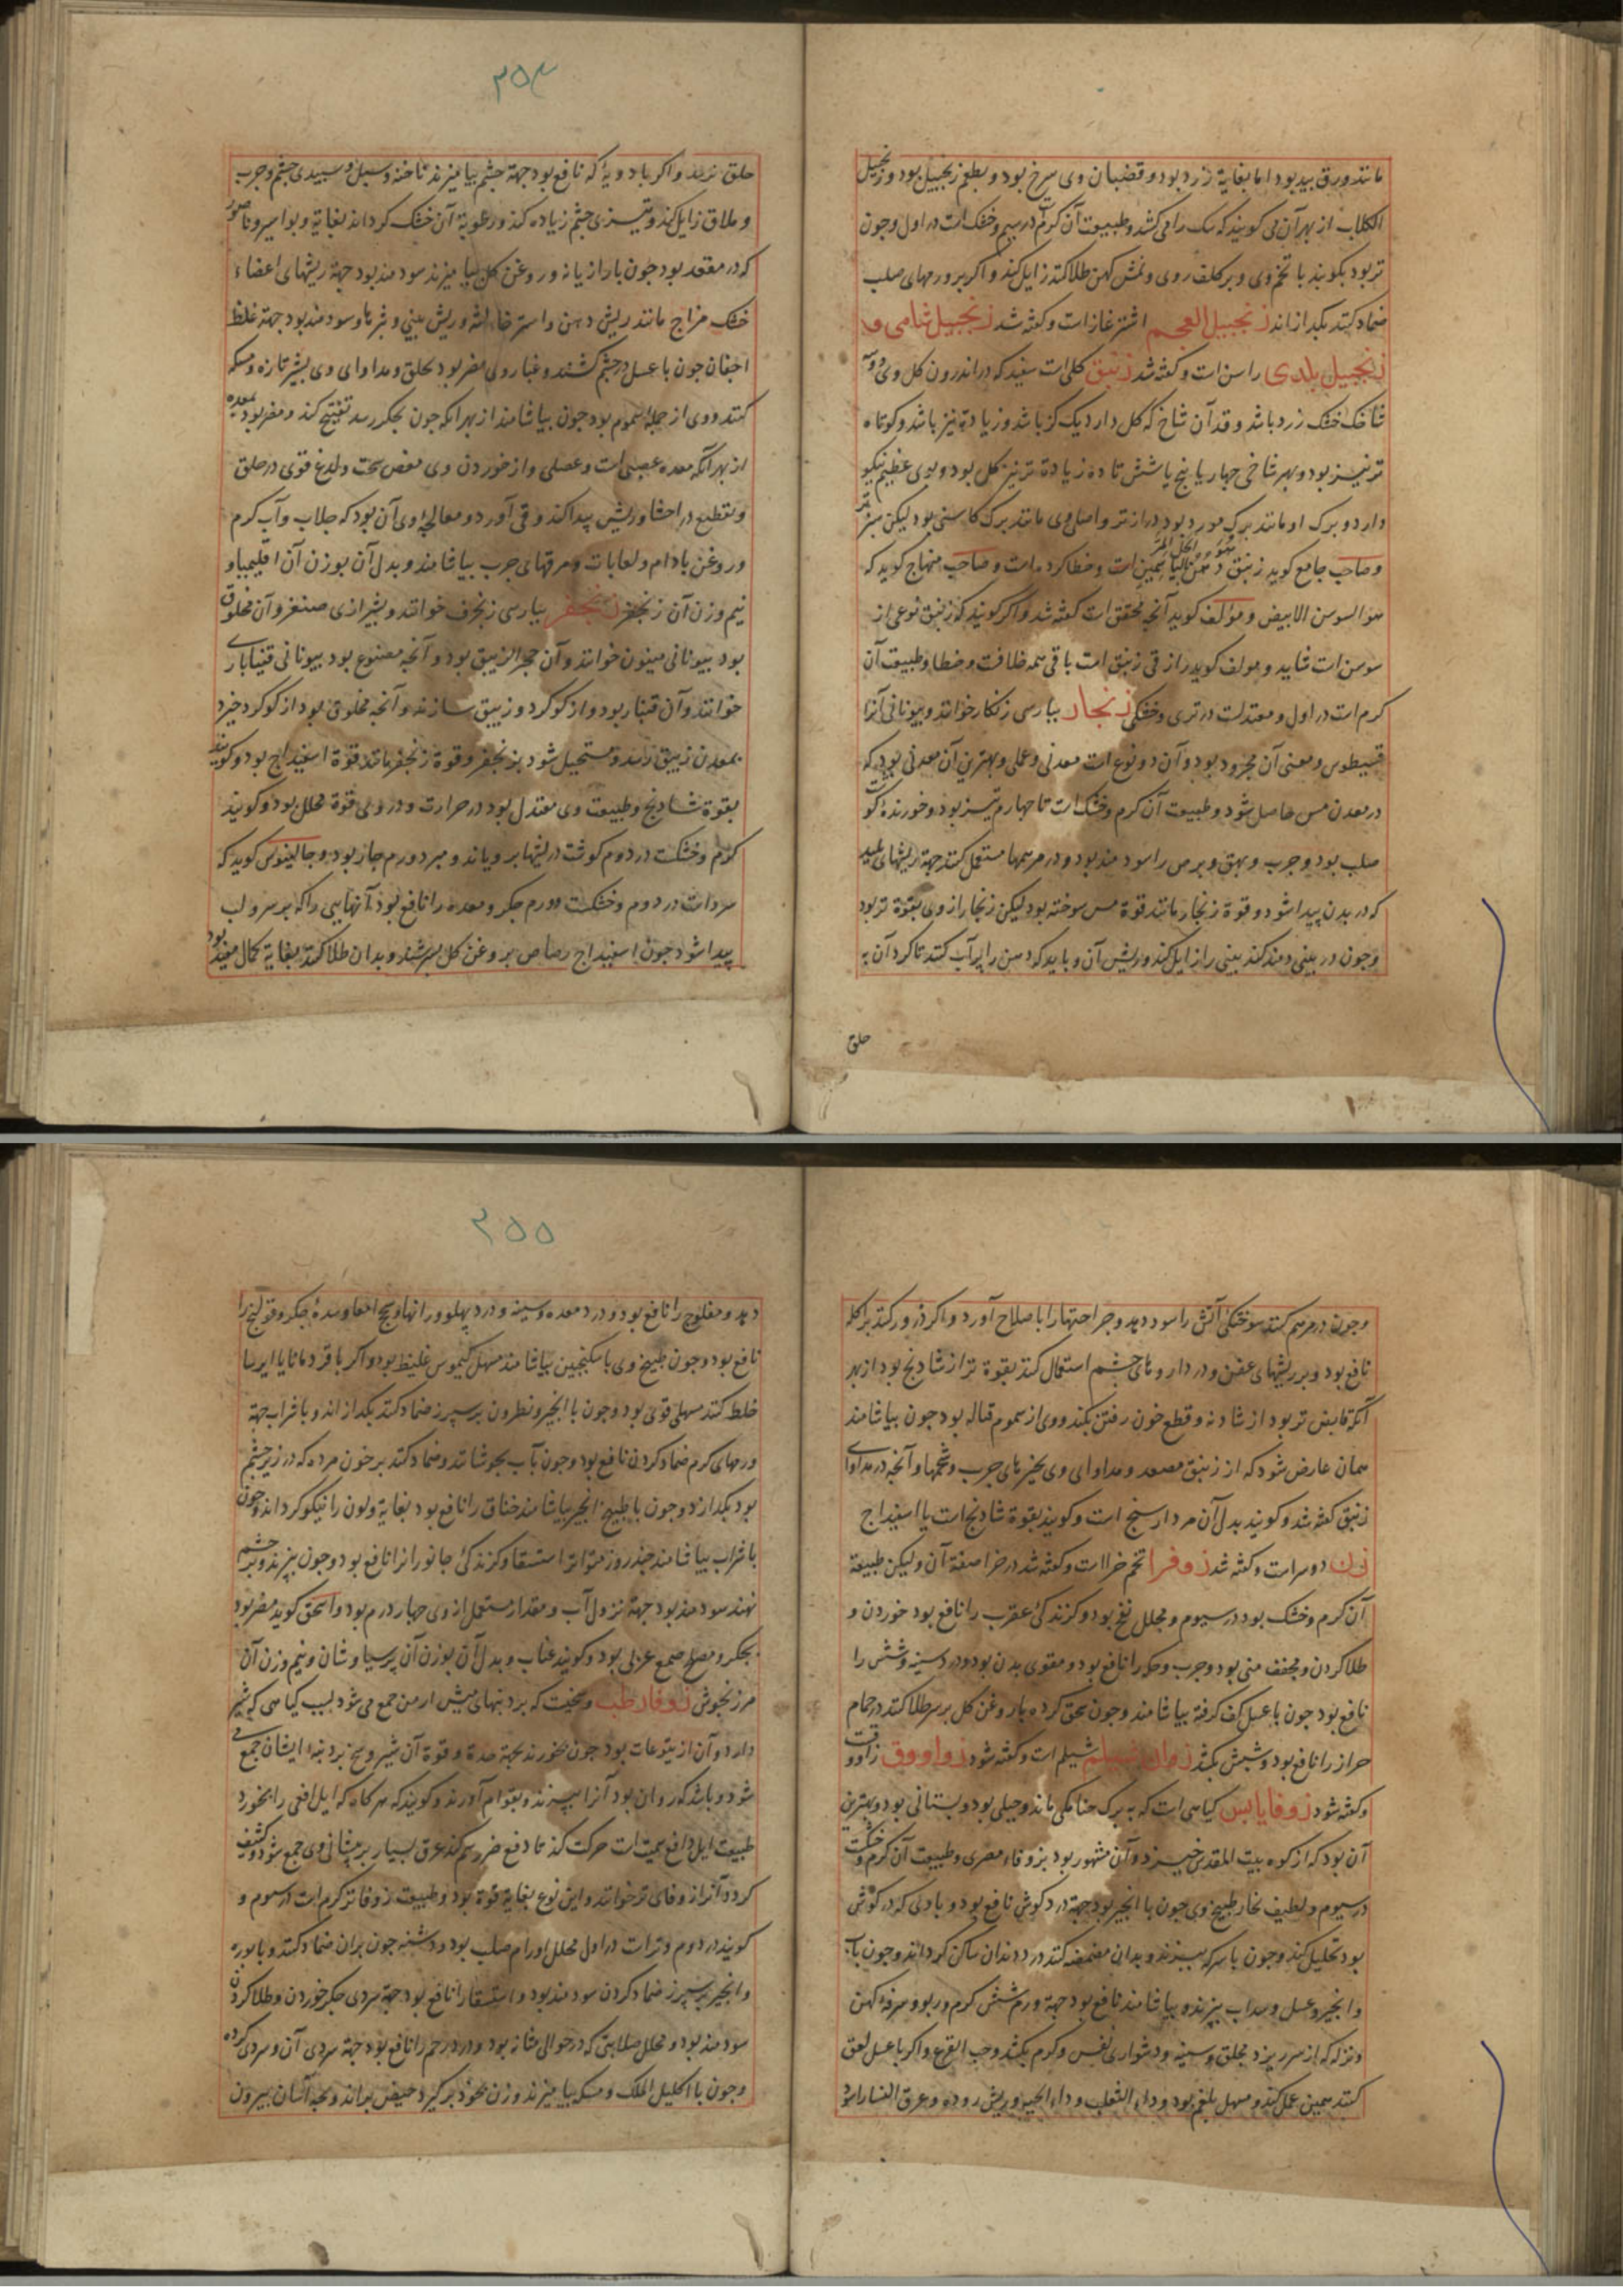 مانند ورق بید بود اما بغایة زرد بود و قضبان وی سرخ بود و بطعم زنجبیل بود و زنجبیل
الکلاب از بهر آن می کویند که سک را می کشد و طبیعت آن کرم در سیم و خشک است در اول و جون
تر بود بکوبند با تخم وی و بر کلف روی و نمش کهن طلا کنند زایل کند و اکر بر ورمهای صلب
ضماد کنند بکدازاند زنجبیل العجم اشترغاز است و کفته شد زنجبیل شامی و
زنجبیل بلدی راسن است و کفته شد زنبق کلی است سفید که در اندرون کل وی دو سه
شاخک خشک زرد باشد و قد آن شاخ که کل دارد یک کز باشد و زیادة نیز باشد و کوتاه
تر نیز بود و بهر شاخی جهار یا پنج یا شش تا ده زیادة تر نیز کل بود و بوی عظیم نیکو
دارد و برک او مانند برک مورد بود دراز تر و اصل وی مانند برک کاسنی بود لیکن سبز تر
و صاحب جامع کوید زنبق دهن الیاسمین است و خطا کرده است و صاحب منهاج کوید که
هو السوسن الابیض و مؤلف کوید آنجه محقق است کفته شد و اکر کویند که زنبق نوعی از
سوسن است شاید و مولف کوید رازقی زنبق است باقی همه خلافت و خطا و طبیعت آن
کرم است در اول و معتدلست در تری و خشکی زنجار بپارسی زنکار خوانند و بیونانی آنرا
قسیطوس و معنی آن مجرود بود و آن دو نوع است معدنی و عملی و بهترین آن معدنی بود که
در معدن مس حاصل شود و طبیعت آن کرم و خشک است تا جهارم و تیز بود و خورنده کوشت
صلب بود و جرب و بهق و برص را سودمند بود و در مرهمها مستعمل کنند جهة ریشهای پلید
که در بدن پیدا شود و قوة زنجار مانند قوة مس سوخته بود لیکن زنجار از وی بقوة تر بود
و جون در بینی دمند کند بینی را زایل کند و ریش آن و باید که دهن را پر آب کنند تا کرد آن به
حلق
۲۵۴
حلق نرسد و اکر با دویهٔ که نافع بود جهة جشم بیامیزند ناخنه و سبل و سپیدی جشم و جرب
و سلاق زایل کند و تیزی جشم زیاده کند و رطوبة آن خشک کرداند بغایة و بواسیر و ناصور
که در مقعد بود جون با رازیانه و روغن کل بیامیزند سودمند بود جهة ریشهای اعضاء
خشک مزاج مانند ریش دهن و استرخاء لثه و ریش بینی و نثرها و سودمند بود جهة غلظ
اجفان جون با عسل در جشم کشند و غبار وی مضر بود بحلق و مداوای وی بشیر تازه و مسکه
کنند و وی از جمله سموم بود جون بیاشامند از بهر آنکه جون بجکر رسد تفتیح کند و مضر بود بمعده
از بهر آنکه معده عصبی است و عضلی و از خوردن وی مغص سخت و لدغ قوی در حلق
و تقطیع در احشا و ریش پیدا کند و قی آورد و معالجهٔ وی آن بود که جلاب و آب کرم
و روغن بادام و لعابات و مرقهای جرب بیاشامند و بدل آن بوزن آن اقلیمیا و
نیم وزن آن زنجفر زنجفر بپارسی زنجرف خوانند و بشیرازی صنغر و آن مخلوق
بود بیونانی مینون خوانند و آن حجر الزیبق بود و آنجه مصنوع بود بیونانی قیناباری
خوانند و آن قنبار بود و از کوکرد و زیبق سازند و آنجه مخلوق بود از کوکرد خیزد
بمعدن زیبق رسد و مستحیل شود بزنجفر و قوة زنجفر مانند قوة اسفیداج بود و کویند
بقوة شادنج و طبیعت وی معتدل بود در حرارت و در وی قوة محلل بود و کویند
کرم و خشکست در دوم کوشت در ریشها برویاند و مبرد ورم حار بود و جالینوس کوید که
سرد است در دوم و خشکست و ورم جکر و معده را نافع بود آنهایی را که بر سر و لب
پیدا شود جون با اسفیداج رصاص بروغن کل بسرشند و بدان طلا کنند بغایة کمال مفید بود
و جون در مرهم کنند سوختکی آتش را سود دهد و جراحتها را با صلاح آورد و اکر ذرور کنند بر اکله
نافع بود و بر ریشهای عفن و در داروهای جشم استعمال کنند بقوة تر از شادنج بود از بهر
آنکه قابض تر بود از شادنه و قطع خون رفتن بکند و وی از سموم قتاله بود جون بیاشامند
همان عارض شود که از زنبق مصعد و مداوای وی بخیرهای جرب و شحمها و آنجه در مداوای
زنبق کفته شد و کویند بدل آن مردارسنج است و کویند بقوة شادنج است یا اسفیداج
زن دوسر است و کفته شد زوفرا تخم خرا است و کفته شد در خرا صفة آن و لیکن طبیعة
آن کرم و خشک بود در سیوم و محلل نفخ بود و کزندکی عقرب را نافع بود خوردن و
طلا کردن و مجفف منی بود و جرب و حکه را نافع بود و مقوی بدن بود و درد سینه و شش را
نافع بود جون با عسل کف کرفته بیاشامند و جون سحق کرده با روغن کل بر سر طلا کنند در حمام
حزاز را نافع بود و شپش بکشد زوان شیلم شیلم است و کفته شود زواووق زاووق است
و کفته شود زوفا یابس کیاهی است که به برک حنا مکی ماند و جبلی بود و بستانی بود و بهترین
آن بود که از کوه بیت المقدس خیزد و آن مشهور بود بزوفاء مصری و طبیعت آن کرم و خشکست
در سیوم و لطیف بخار طبیخ وی جون با انجیر بود جهة درد کوش نافع بود و بادی که در کوش
بود تحلیل کند و جون با سرکه بپزند و بدان مضمضه کنند درد دندان ساکن کرداند و جون با آب
و انجیر و عسل و سداب بپزند و بیاشامند نافع بود جهة ورم شش کرم و ربو و سرفهٔ کهن
و نزله که از سر ریزد بحلق و سینه و دشواری نفس و کرم بکشد و حب القرع و اکر با عسل لعق
کنند همین عمل کند و مسهل بلغم بود و داء الثعلب و داء الحیه و ریش روده و عرق النسا را سود
۲۵۵
دهد و مفلوج را نافع بود و درد معده و سینه و درد پهلو و رانها و سحج امعا و سدهٔ جکر و قولنج را
نافع بود و جون طبیخ وی با سکنجبین بیاشامند مسهل کیموس غلیظ بود و اکر با قردمانا یا ایرسا
خلط کنند مسهلی قوی بود و جون با انجیر و نطرون بر سپرز ضماد کنند بکدازاند و با شراب جهة
ورمهای کرم ضماد کردن نافع بود و جون بآب بجوشانند و ضماد کنند بر خون مرده که در زیر جشم
بود بکدازد و جون با طبیخ انجیر بیاشامند خناق را نافع بود بغایة و لون را نیکو کرداند و جون
با شراب بیاشامند جند روز متواتر استسقا و کزندکی جانوران را نافع بود و جون بپزند و بر جشم
نهند سودمند بود جهة نزول آب و مقدار مستعمل از وی جهار درم بود و اسحق کوید مضر بود
بجکر و مصلح صمغ عربی بود و کویند عناب و بدل آن بوزن آن پرسیاوشان و نیم وزن آن
مرزنجوش زوفا رطب وسخیست که بر دنبهای میش ارمن جمع می شود بسبب کیاهی که شیر
دارد و آن از یتوعات بود جون بخورند بجهة حدة و قوة آن شیر وسخ بر دنبهٔ ایشان جمع می
شود و باشد که روان بود آنرا بپزند و بقوام آورند و کویند که هرکاه که ایل افعی را بخورد
طبیعت ایل دافع سمیت است حرکت کند تا دفع ضرر سم کند عرق بسیار بر پیشانی وی جمع شود و کثیف
کردد و آنرا زوفای تر خوانند و این نوع بغایة قوة بود و طبیعت زوفا تر کرم است در سیوم و
کویند در دوم و تر است در اول محلل اورام صلب بود و دشنه جون بران ضماد کنند و با بوره
و انجیر بر سپرز ضماد کردن سودمند بود و استسقا را نافع بود جهة سردی جکر خوردن و طلا کردن
سودمند بود و محلل صلابتی که در حوالی مثانه بود و درد رحم را نافع بود جهة سردی آن و سردی کرده
و جون با اکلیل الملک و مسکه بیامیزند و زن بخود برکیرد حیض براند و بجه آسان بیرون